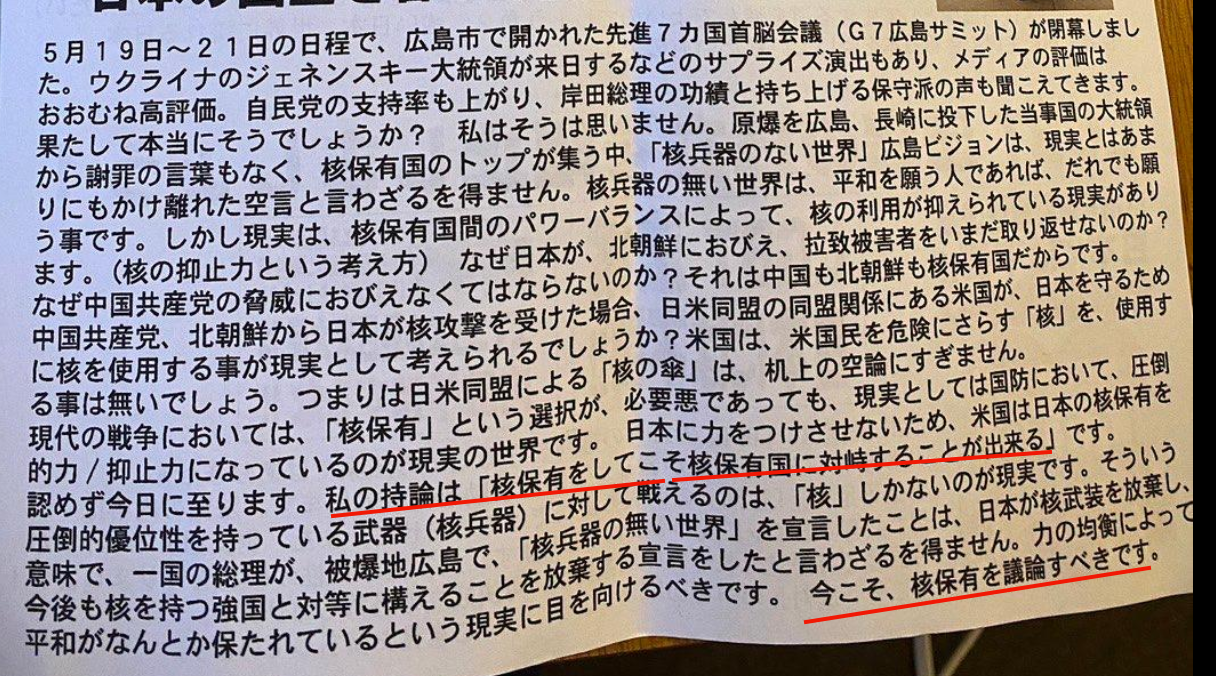 日本の
５月１９日～２１日の日程で、広島市で開かれた先進７カ国首脳会議（Ｇ７広島サミット）が閉幕しまし
た。ウクライナのジェネンスキー大統領が来日するなどのサプライズ演出もあり、メディアの評価は
おおむね高評価。自民党の支持率も上がり、岸田総理の功績と持ち上げる保守派の声も聞こえてきます。
果たして本当にそうでしょうか？　私はそうは思いません。原爆を広島、長崎に投下した当事国の大統領
から謝罪の言葉もなく、核保有国のトップが集う中、「核兵器のない世界」広島ビジョンは、現実とはあま
りにもかけ離れた空言と言わざるを得ません。核兵器の無い世界は、平和を願う人であれば、だれでも願
う事です。しかし現実は、核保有国間のパワーバランスによって、核の利用が抑えられている現実があり
ます。（核の抑止力という考え方）　なぜ日本が、北朝鮮におびえ、拉致被害者をいまだ取り返せないのか？
なぜ中国共産党の脅威におびえなくてはならないのか？それは中国も北朝鮮も核保有国だからです。
中国共産党、北朝鮮から日本が核攻撃を受けた場合、日米同盟の同盟関係にある米国が、日本を守るため
に核を使用する事が現実として考えられるでしょうか？米国は、米国民を危険にさらす「核」を、使用す
る事は無いでしょう。つまりは日米同盟による「核の傘」は、机上の空論にすぎません。
現代の戦争においては、「核保有」という選択が、必要悪であっても、現実としては国防において、圧倒
的力/抑止力になっているのが現実の世界です。　日本に力をつけさせないため、米国は日本の核保有を
認めず今日に至ります。私の持論は「核保有をしてこそ核保有国に対峙することが出来る」です。
圧倒的優位性を持っている武器（核兵器）に対して戦えるのは、「核」しかないのが現実です。そういう
意味で、一国の総理が、被爆地広島で、「核兵器の無い世界」を宣言したことは、日本が核武装を放棄し、
今後も核を持つ強国と対等に構えることを放棄する宣言をしたと言わざるを得ません。力の均衡によって
平和がなんとか保たれているという現実に目を向けるべきです。　今こそ、核保有を議論すべきです。